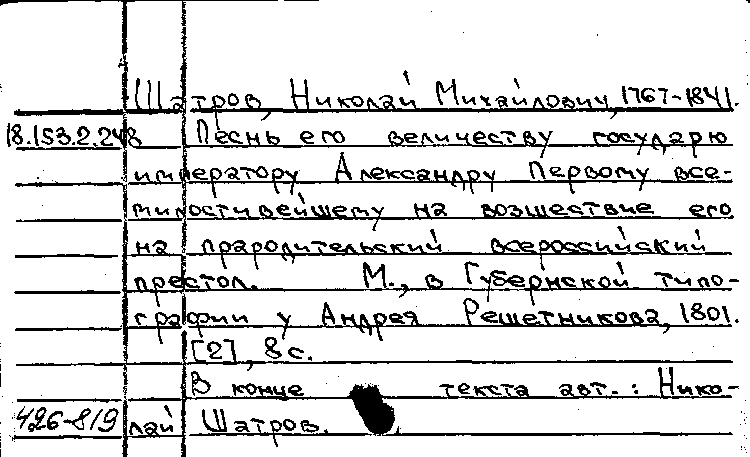 Шатров, Николай Михайлович, 1767-1841.
18.153.2.248 Песнь его величеству государю
императору Александру Первому все-
милостивейшему на возшествие его
на прародительский всероссийский
престол. М., в Губернской типо-
графии у Андрея Решетникова, 1801.
[2], 8 с.
В конце текста авт.: Нико-
426-819 лай Шатров.